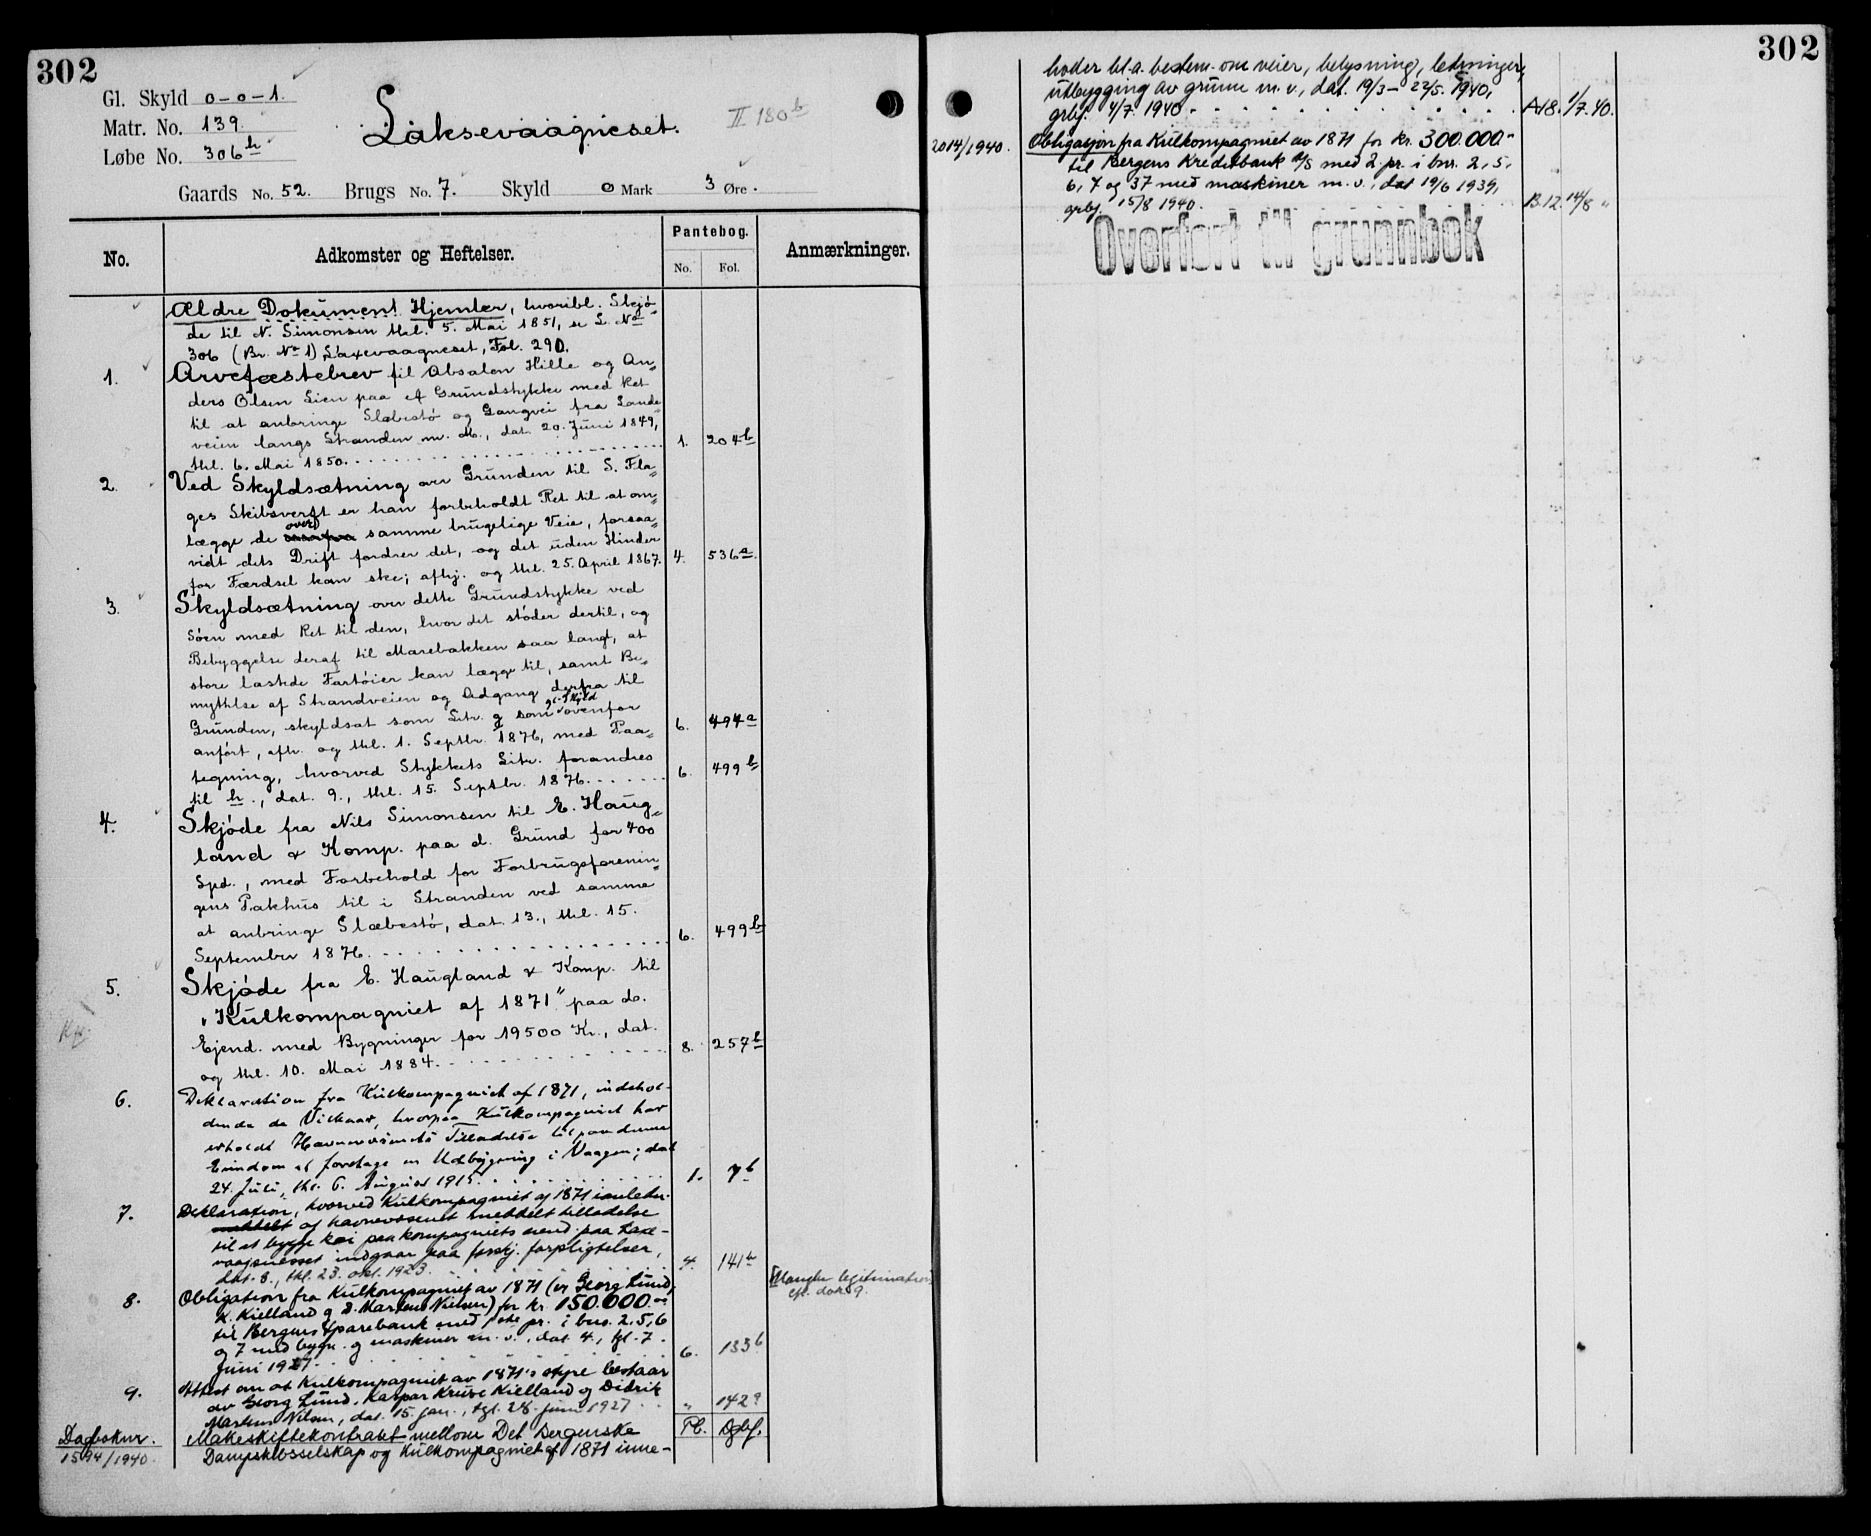 302
Gl. Skyld 0-0-1.
Matr. No. 139.
Løbe No. 306 h
Laksevaagneset.
II 180 b
Gaards No. 52. Brugs No. 7. Skyld 0 Mark 3 Øre.
No. Adkomster og Heftelser. Pantebog. No. Fol. Anmærkninger.
Ældre Dokument. Hjemler, hvoribl. Skjø-
de til N. Simonsen thl. 5. Mai 1851, se L. No
306 (Br. No 1) Laxevaagneset, Fol. 290.
1. Arvefæstebrev til Absalon Hille og An-
ders Olsen Lien paa et Grundstykke med Ret
til at anbringe Slæbestø og Gangvei fra Lande-
veien langs Stranden m. M., dat. 20. Juni 1849,
thl. 6. Mai 1850. 1. 204 b
2. Ved Skyldsætning over Grunden til S. Fla-
ges Skibsverft er han forbeholdt Ret til at om-
lægge de over samme brugelige Veie, forsaa-
vidt dets Drift fordrer det, og det uden Hinder
for Færdsel kan ske; afhj. og thl. 25. April 1867. 4. 536 a
3. Skyldsætning over dette Grundstykke ved
Søen med Ret til den, hvor det støder dertil, og
Bebyggelse deraf til Marebakken saa langt, at
store lastede Fartøier kan lægge til, samt Be-
nyttelse af Strandveien og Adgang derfra til
Grunden, skyldsat som Litr. g som gl. Skyld ovenfor
anført, afh. og thl. 1. Septbr. 1876, med Paa- 6. 494 a
tegning, hvorved Stykkets Litr. forandres
til h., dat. 9., thl. 15. Septbr. 1876. 6. 499 b
4. Skjøde fra Nils Simonsen til E. Haug-
land & Komp. paa d. Grund for 400
Spd., med Forbehold for Forbrugsforenin-
gens Pakhus til i Stranden ved samme
at anbringe Slæbestø, dat. 13., thl. 15.
September 1876. 6. 499 b
5. Skjøde fra E. Haugland & Komp. til
"Kulkompagniet af 1871" paa do.
Ejend. med Bygninger for 19500 Kr., dat.
og thl. 10. Mai 1884. 8. 257 b
6. Deklaration fra Kulkompagniet af 1871, indehol-
dende de Vilkaar, hvorpaa Kulkompagniet har
erholdt Havnevæsenets Tilladelse til paa denne
Eiendom at foretage en Udbygning i Vaagen; dat.
24. Juli, thl. 6. August 1915. 1. 7 b
7. Deklaration, hvorved Kulkompagniet af 1871
meddelt af havnevæsenet meddelt tilladelse
til at bygge kai paa kompagniets eiend. paa Laxe-
vaagnesset indgaar paa forskj. forpligtelser,
dat. 8., thl. 23. okt. 1923. 4. 141 b
8. Obligation fra Kulkompagniet av 1871 (v. Georg Lund,
K. Kielland og D. Martens Nielsen) for kr. 150.000.-
til Bergens Sparebank med 1ste pr. i bns. 2, 5, 6
og 7 med bygn. og maskiner m. v., dat. 4., tgl. 7.
juni 1927. 6. 133 b
Mangler legitimation
cfr. dok 9.
9. Attest om at Kulkompagniet av 1871's styre bestaar
av Georg Lund, Kaspar Kruse Kielland og Didrik
Martens Nilsen, dat. 15. jan., tgl. 28. juni 1927. " 142 a
Dagboknr. Pb. Dgbf.
1594/1940. Makeskiftekontrakt mellom Det Bergenske
Dampskibsselskap og Kulkompagniet af 1871 inne-
302
holder bl. a. bestem. om veier, belysning, ledninger,
utbygging av grunn m. v., dat. 19/3 - 22/5 1940,
grbj. 4/7 1940. A18. 1/7.40.
2014/1940. Obligasjon fra Kulkompagniet av 1871 for kr. 300.000-
til Bergens Kreditbank A/S med 2. pr. i bnr. 2, 5,
6, 7 og 37 med maskiner m. v., dat 19/6 1939,
grbj. 15/8 1940. B.12. 14/8 "
Overført til grunnbok